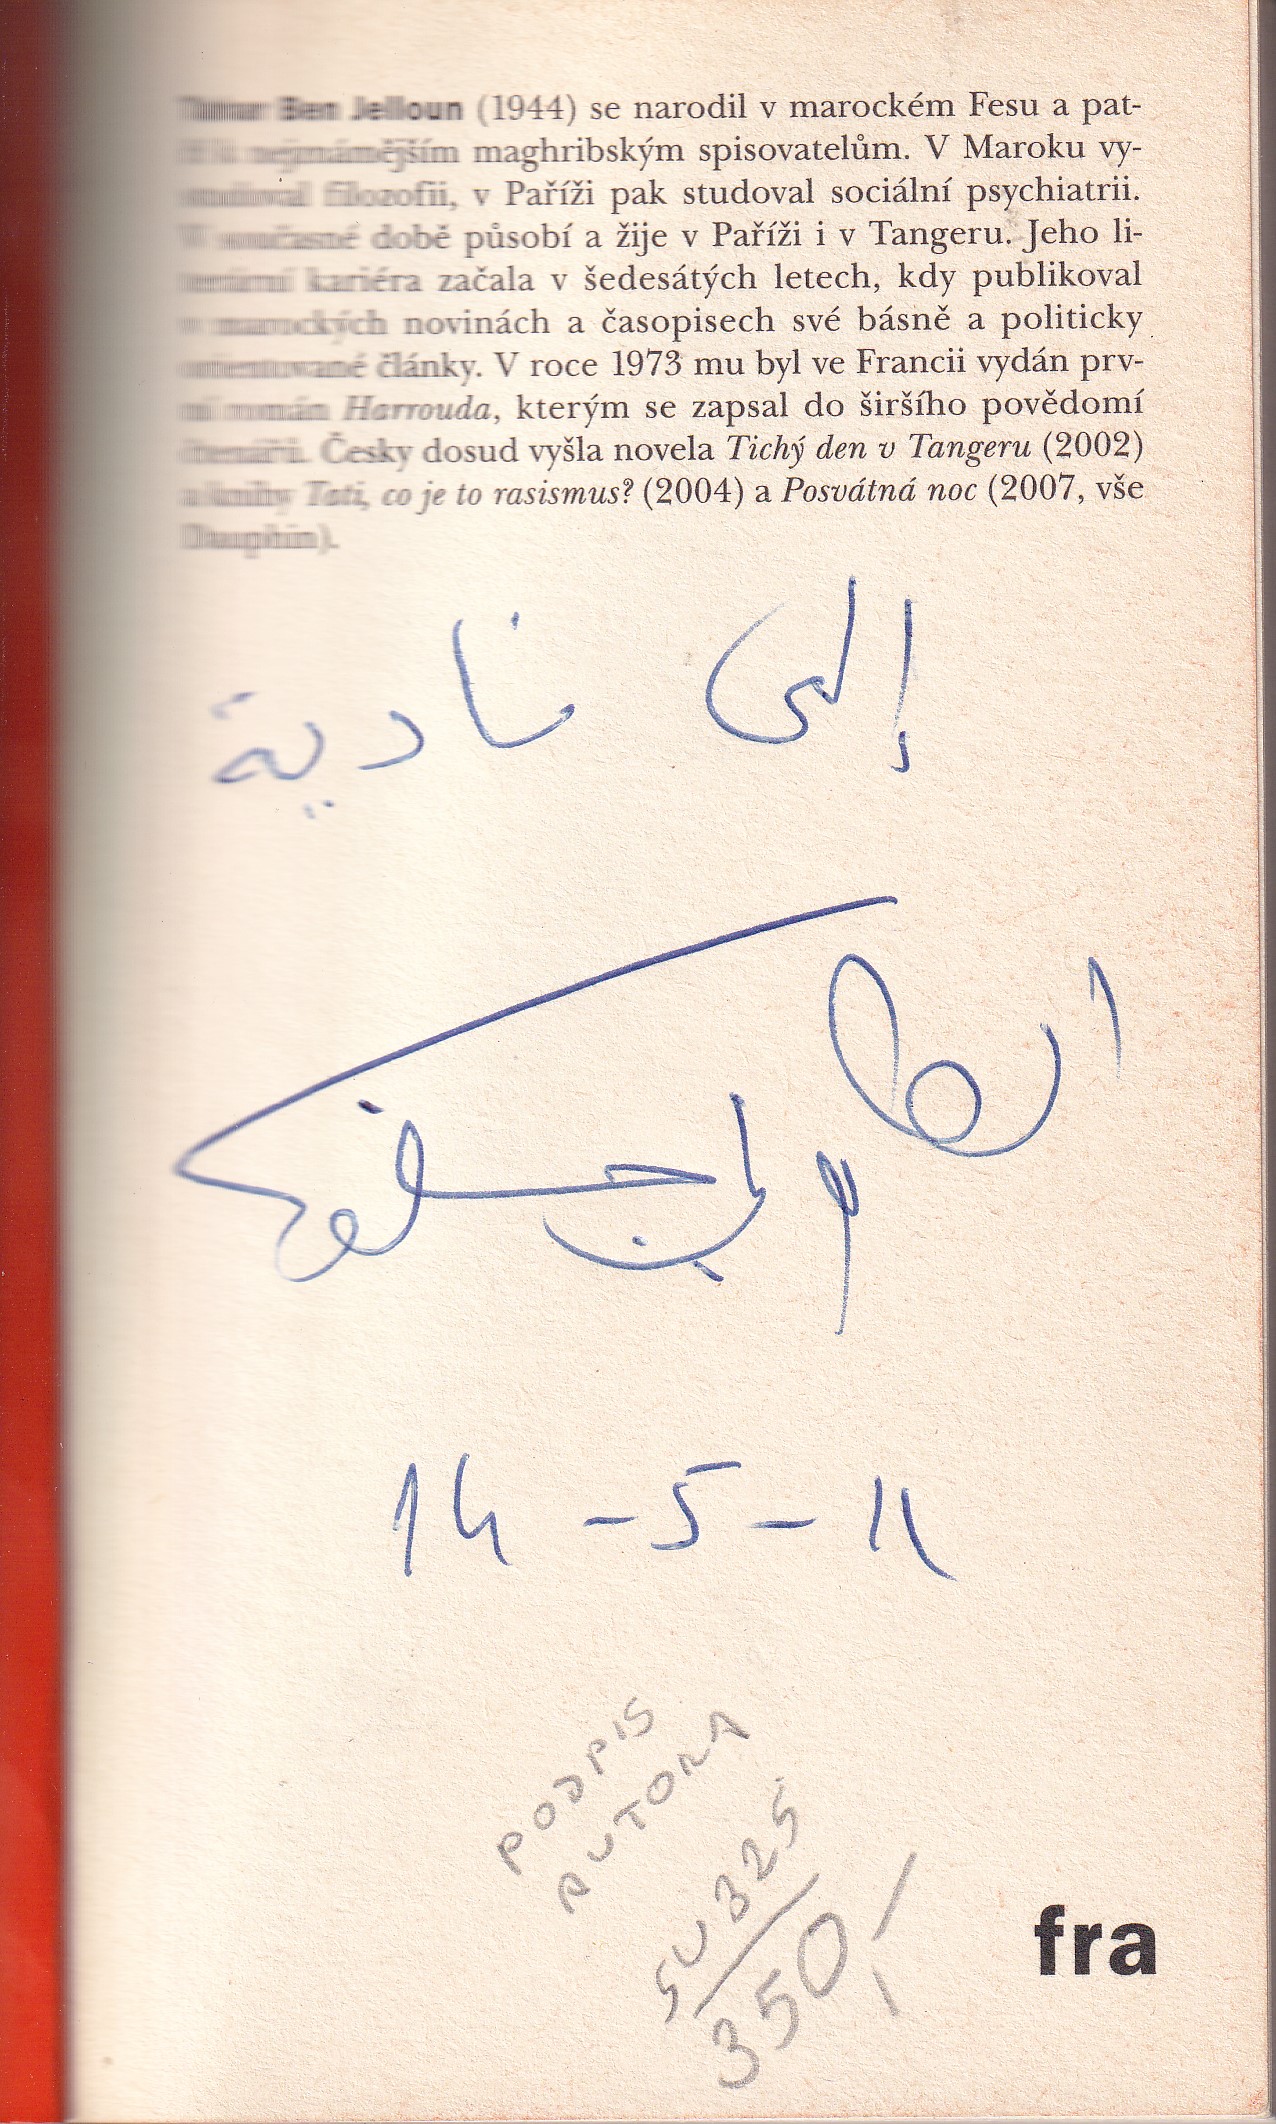 Tahar Ben Jelloun (1944) se narodil v marockém Fesu a pat-
ří k nejznámějším maghribským spisovatelům. V Maroku vy-
studoval filozofii, v Paříži pak studoval sociální psychiatrii.
V současné době působí a žije v Paříži i v Tangeru. Jeho li-
terární kariéra začala v šedesátých letech, kdy publikoval
v marockých novinách a časopisech své básně a politicky
orientované články. V roce 1973 mu byl ve Francii vydán prv-
ní román Harrouda, kterým se zapsal do širšího povědomí
čtenářů. Česky dosud vyšla novela Tichý den v Tangeru (2002)
a knihy Tati, co je to rasismus? (2004) a Posvátná noc (2007, vše
Dauphin).
إلى نادية
14-5-11
PODPIS
AUTORA
SU325
350,-
fra